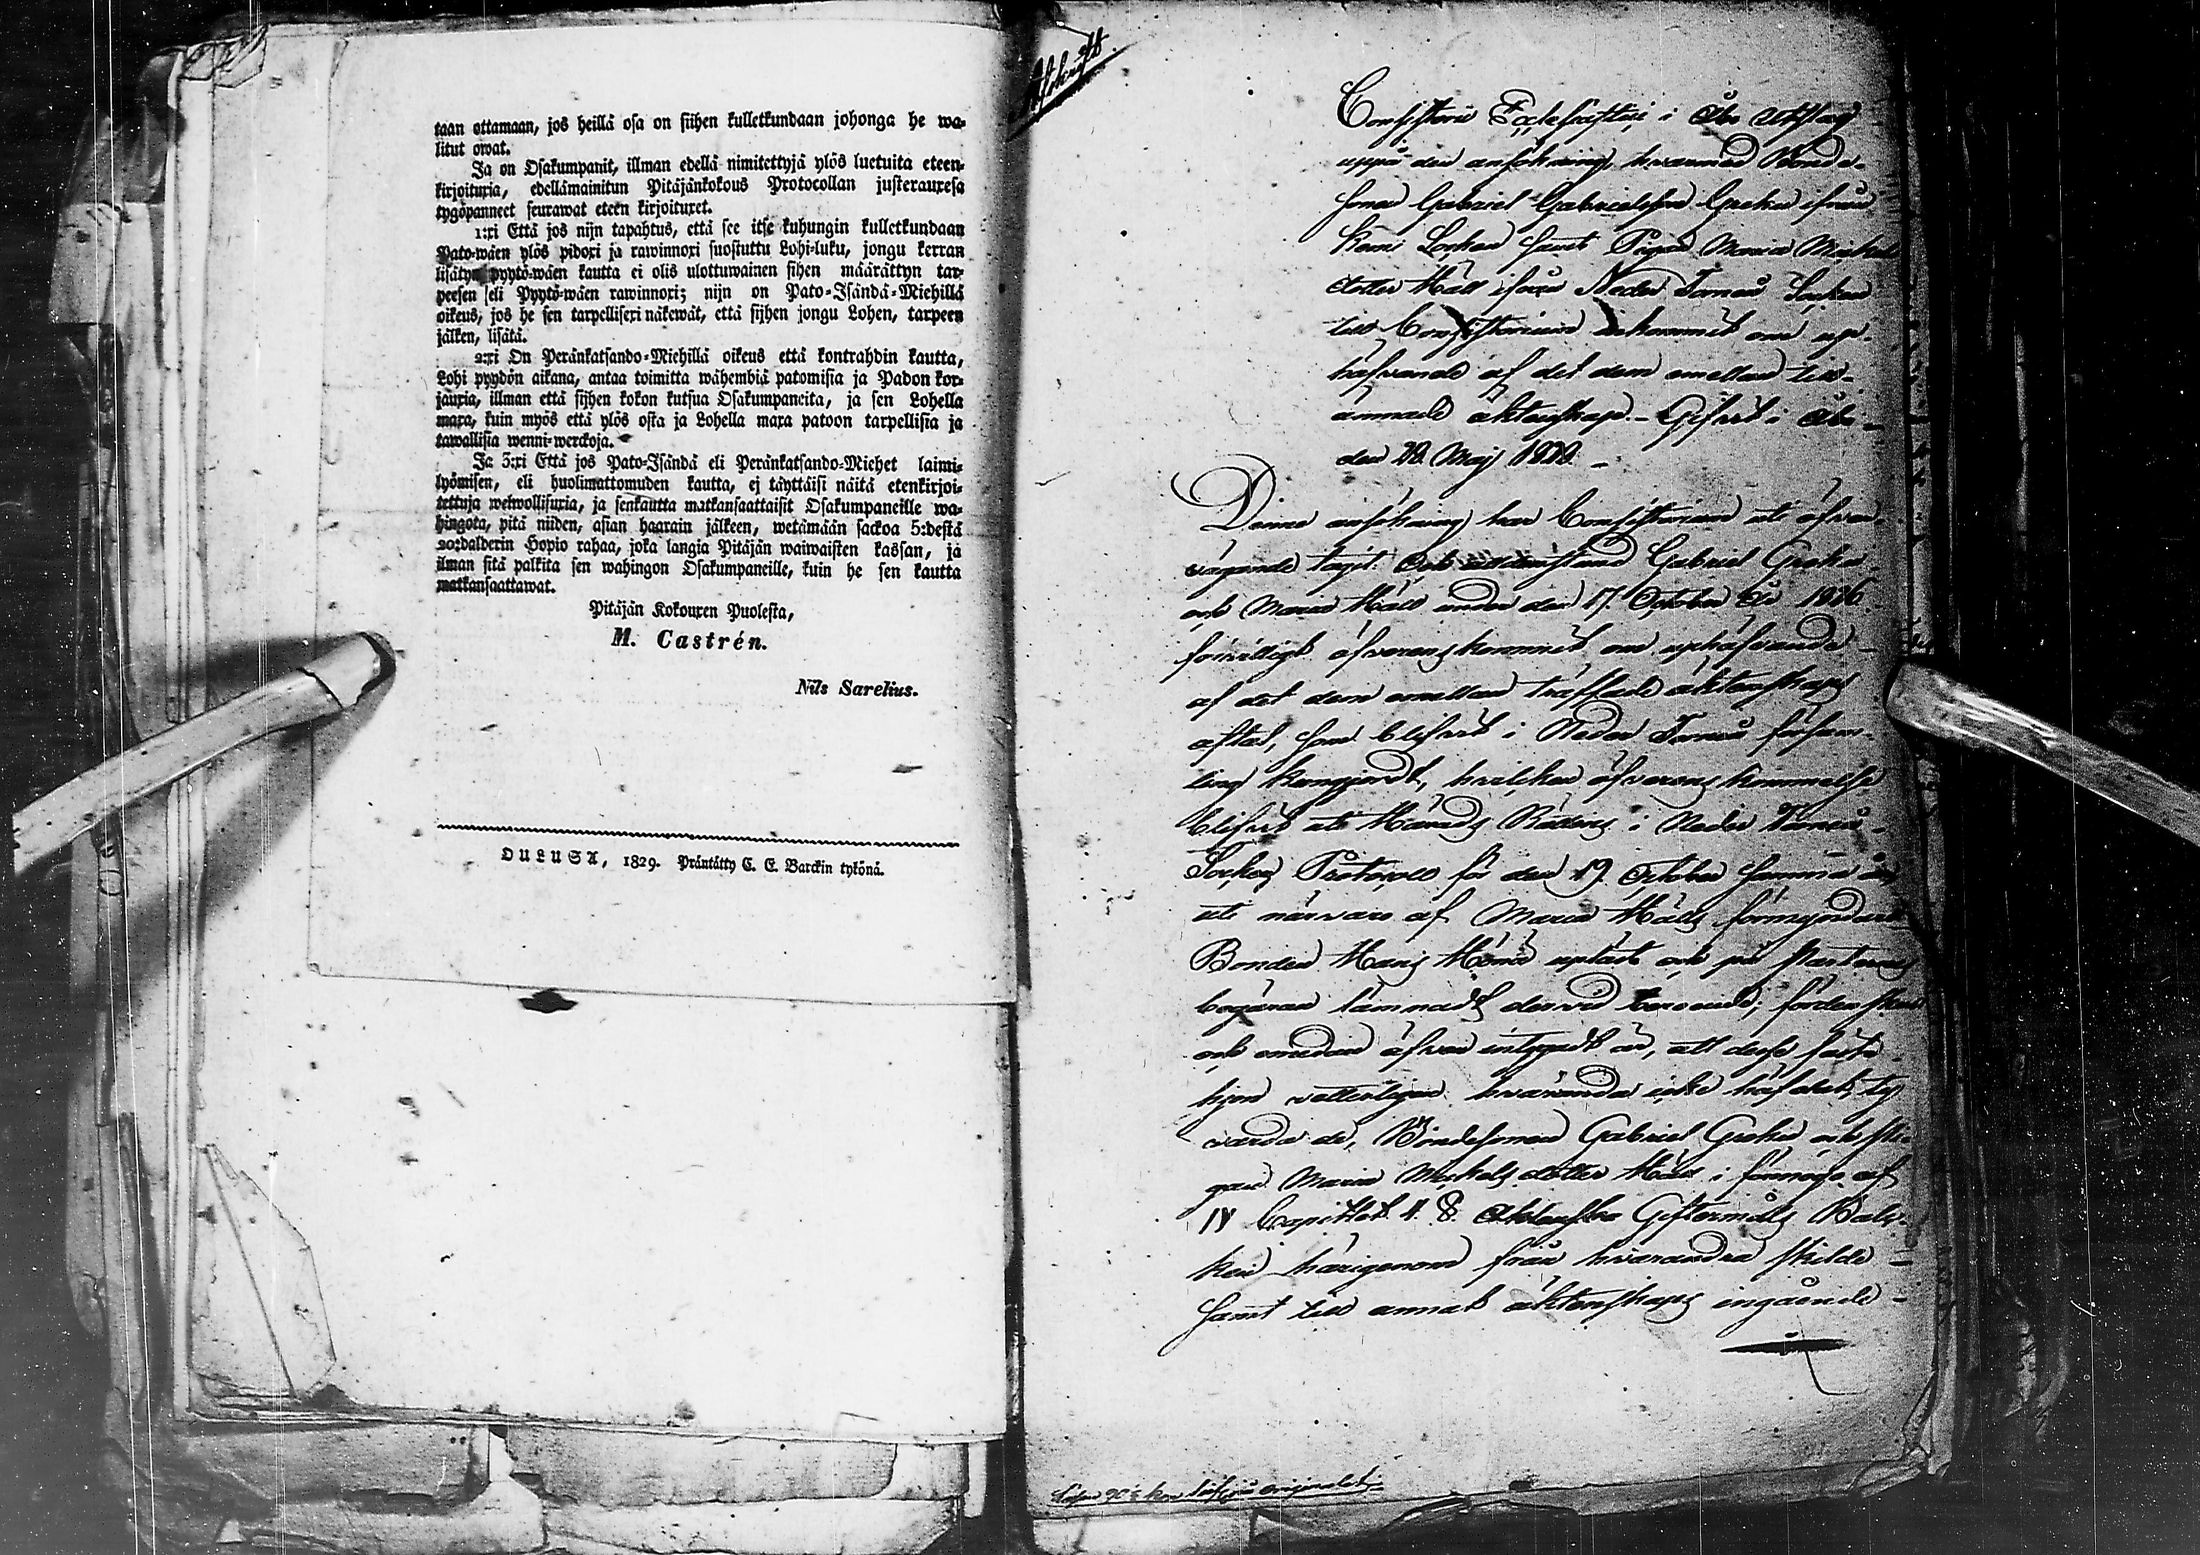 taan ottamaan, jos heillä osa on siihen kulletkundaan johonga he wa-
litut owat.
Ja on Osakumpanit, illman edellä nimitettyjä ylös luetuita eteen-
kirjoituxia, edellämainitun Pitäjänkokous Protocollan justerauxesa
tygöpanneet seurawat eteen kirjoituxet.
1:xi Että jos nijn tapahtus, että see itse kuhungin kulletkundaan
Pato-wäen ylös pidoxi ja rawinnoxi suostuttu Lohi-luku, jongu kerran
lisätyn pyytö-wäen kautta ei olis ulottuwainen sihen määrättyn tar-
peesen eli Pyytö-wäen rawinnoxi; nijn on Pato-Isändä-Miehillä
oikeus, jos he sen tarpellisexi näkewät, että sijhen jongu Lohen, tarpeen
jälken, lisätä.
2:xi On Peränkatsando-Miehillä oikeus että kontrahdin kautta,
Lohi pyydön aikana, antaa toimitta wähembiä patomisia ja Padon kor-
jauxia, illman että sijhen kokon kutsua Osakumpaneita, ja sen Lohella
maxa, kuin myös että ylös osta ja Lohella maxa patoon tarpellisia ja
tawallisia wenni-werckoja.
Ja 3:xi Että jos Pato-Isändä eli Peränkatsando-Miehet laimi-
lyömisen, eli huolimattomuden kautta, ej täyttäisi näitä etenkirjoi-
tettuja welwollisuxia, ja senkautta matkansaattaisit Osakumpaneille wa-
hingota, pitä niiden, asian haarain jälkeen, wetämään sackoa 5:destä
20:dalderin Hopio rahaa, joka langia Pitäjän waiwaisten kassan, ja
ilman sitä palkita sen wahingon Osakumpaneille, kuin he sen kautta
matkansaattawat.
Pitäjän Kokouxen Puolesta,
M. Castrén.
Nils Sarelius.
OULUSA, 1829. Präntätty C. E. Barckin tykönä.
Afskrift.
Consistorii Ecclesiastici i Åbo Utslag
uppå den ansökning, hvarmed Bonde-
sonen Gabriel Gabrielsson Groku ifrån
Kemi Socken samt Pigan Maria Mickels
dotter Häll ifrån Neder Torneå Socken
till Consistorium inkommit om up-
häfvande af det dem emellan till-
ämnade äktenskap. Gifvet i Åbo
den Maji
Denna ansökning har Consistorium uti öfver-
vägande tagit. Och Gabriel Groku
och Maria Häll under den 17 October år 1826
frivilligt öfverenskommit om uphäfvande
af det dem emellan träffade äktenskaps
aftal, som blifvit i Neder Torneå försam-
ling kungjordt, hvilken öfverenskommelse
blifvit uti Härads Rättens i Neder Torneå
Sockens Protocoll för den 19 October samma år
uti närvaro af Maria Hälls förmyndare
Bonden upläst och på Parternes
begäran lämnadt dervid beroende; fördenskull
och emedan äfven intygadt är, att desse fäste-
hjon vetterligen hvarandra icke häfdat; ty
varda de, Bondesonen Gabriel Groku och Pi-
gan Maria Mickels dotter Häll i förmågo af
IV Capitlet 4 §. Giftermåls Bal-
ken härigenom från hvarandra skilde
samt till annat äktenskaps ingående
originalet